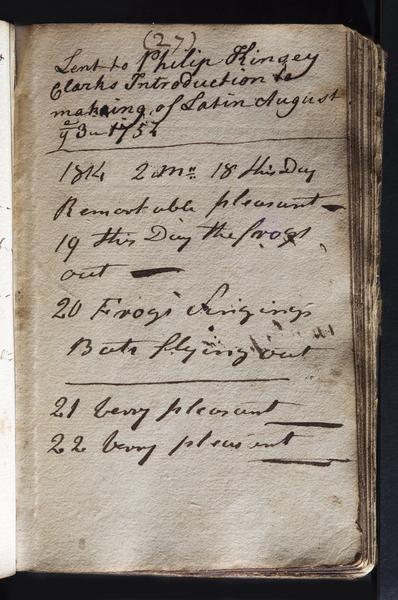 (27)
Lent to Philip Kinsey
Clarks Introduction to
making of Latin August
ye 3d 1754
1814 2 Mo 18 this Day
Remarkable pleasant —
19 this Day the frogs
out —
20 Frogs Singing
Bats flying out
21 very pleasant
22 very pleasent